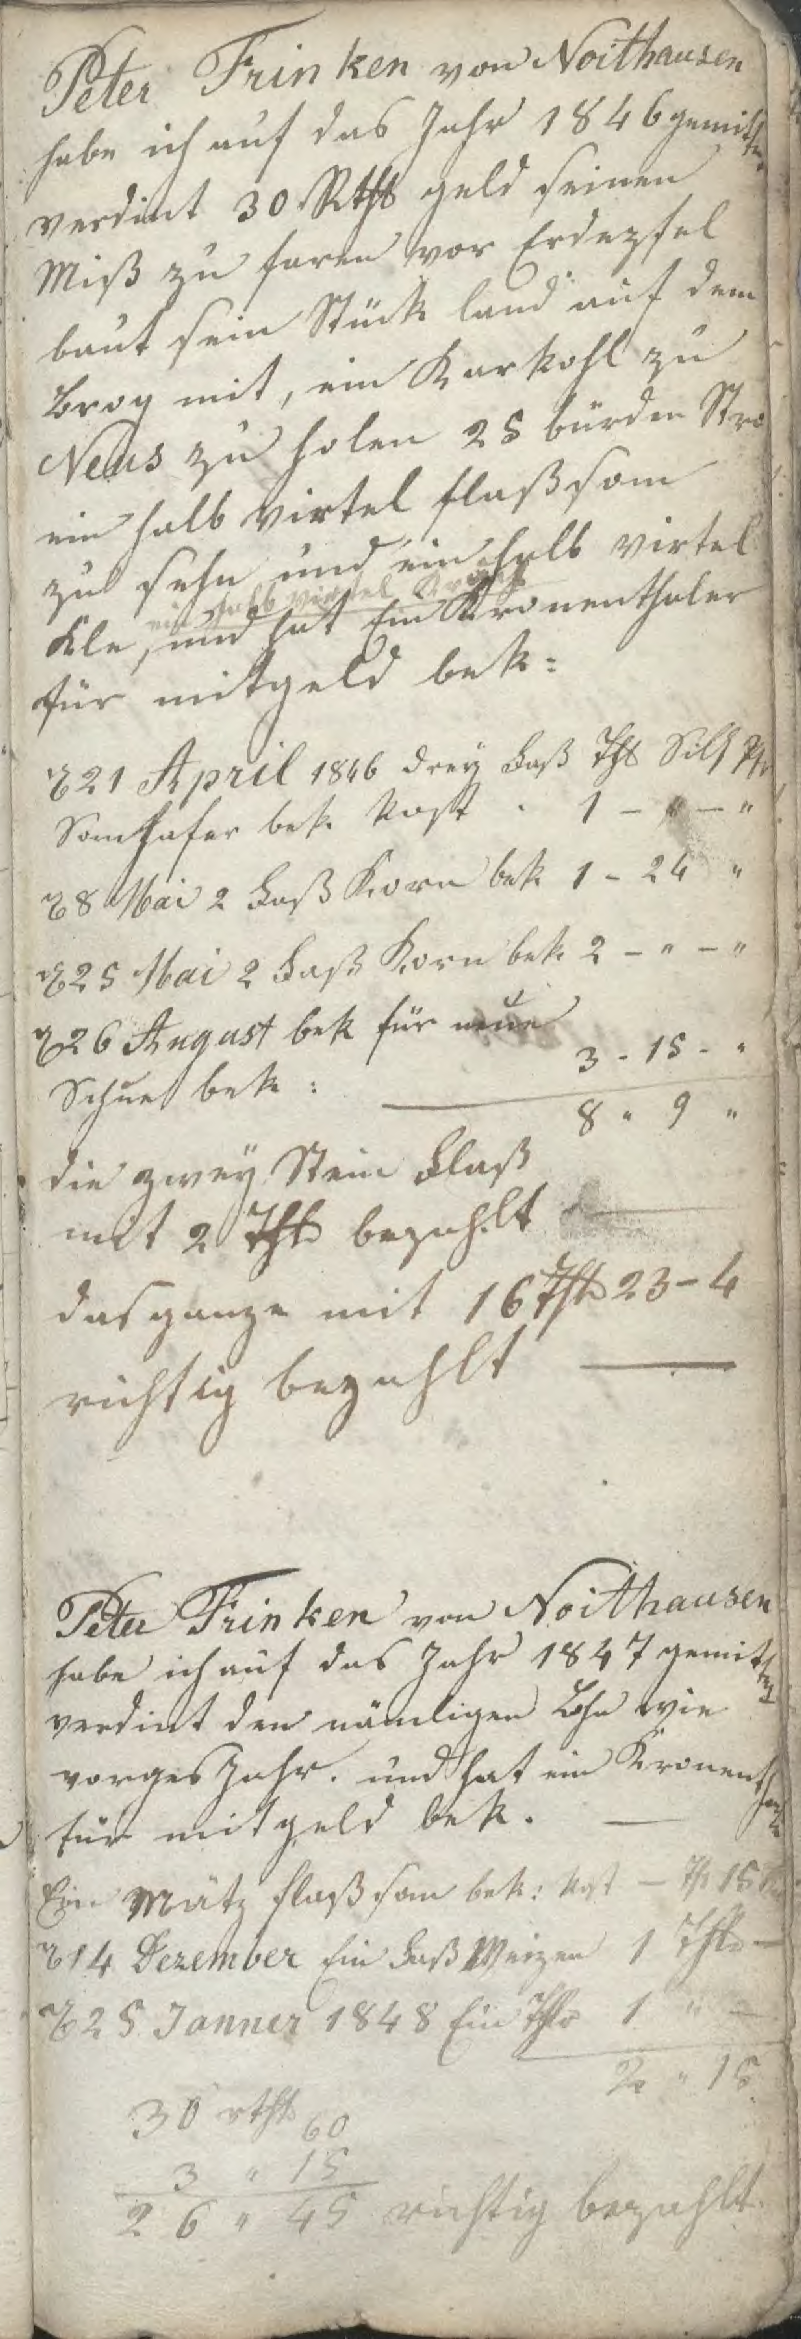 Peter Frinken von Noithausen
habe ich auf das Jahr 1846 gemitt
verdint 30 Rthl geld seinen
Miß zu faren vor Erdepfel
baut sein Stück land auf dem
Broy mit, ein Karkohl zu
Neus zu holen 25 bürden Stro
ein halb virtel flaßsom
zu sehn und ein halb virtel
ein halb virtel
Kle, und hat Ein Kronenthaler
für mitgeld bek:
21 April 1846 drey Faß Thl Silb Pf
Somhafer bek kost . 1 - " - "
28 Mai 2 Faß Korn bek 1 - 24 "
25 Mai 2 Faß Korn bek. 2 - " - "
26 August bek für neue
Schue bek: 3 - 15 - "
8 " 9 "
die zwey Stein Flaß
mit 2 Thl bezahlt
das ganze mit 16 Thl 23 - 4
richtig bezahlt
Peter Frinken von Noithausen
habe ich auf das Jahr 1847 gemitt
verdint den nämligen Lohn wie
voriges Jahr. und hat ein Kronenthaler
für mitgeld bek.
Ein Mätz flaßsom bek: kost - Th 15
14 Dezember Ein Faß Weizen 1 Thlr -
25 Janner 1848 Ein Thlr 1 " -
2 " 15
30 rthl 60
3 " 15
26 " 45 richtig bezahlt.